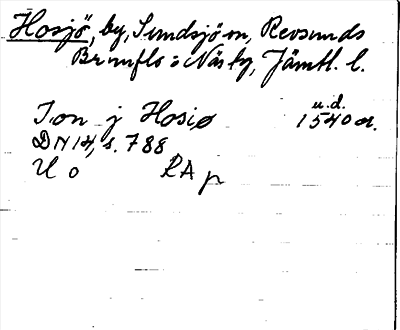 Hosjö, by, Sundsjö sn, Revsunds
Brunflo o Näs tg, Jämtl. l.
u.d.
Jon j Hosiø 1540 a.
DN 14, s. 788
U o RA p